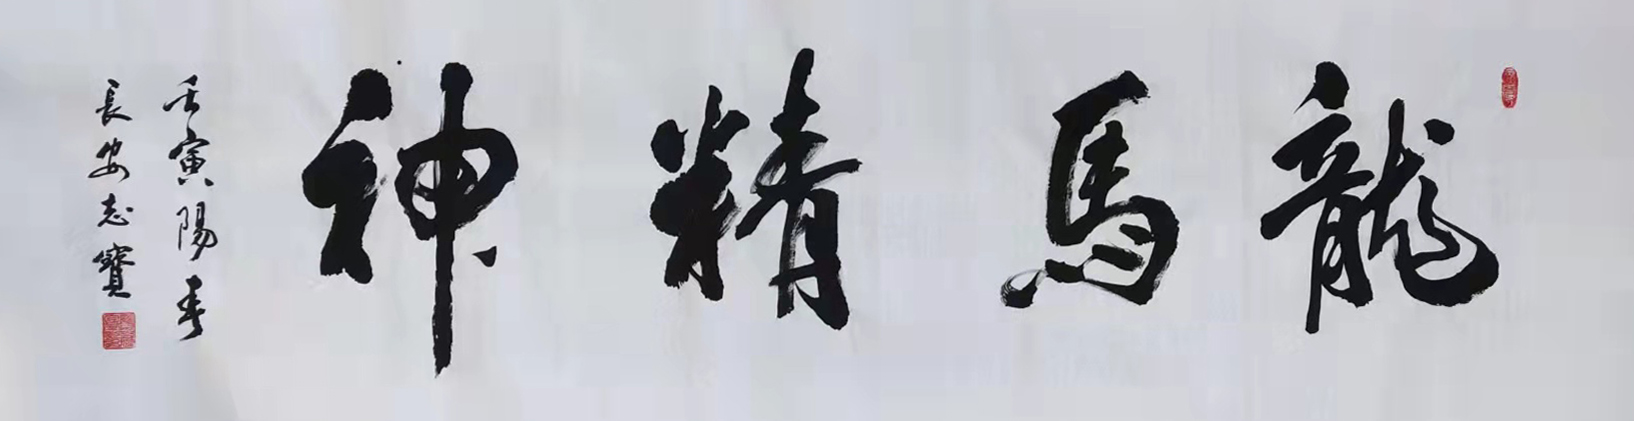 龍馬精神
壬寅陽春
長安志寶